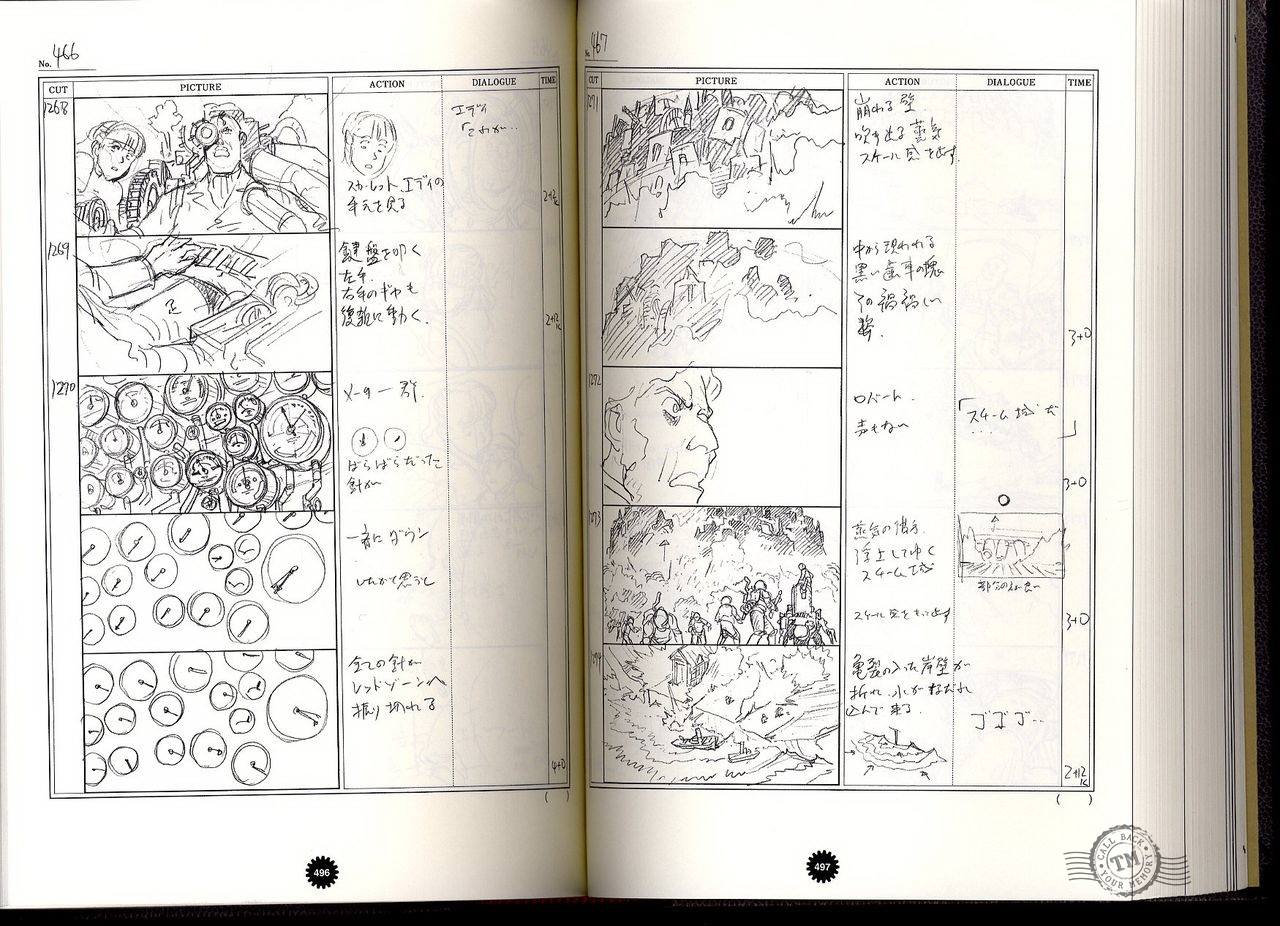 No. 466
CUT PICTURE ACTION DIALOGUE TIME
1268
エディ
「これが…
スカーレット、エディの
手元を見る
2+12
1269
鍵盤を叩く
左手.
右手のギヤも
複雑に動く.
2+12
1270
メーター群.
ばらばらだった
針が
一斉にダウン
したかと思うと
全ての針が
レッドゾーンへ
振り切れる
4+0
( )
496
No. 467
CUT PICTURE ACTION DIALOGUE TIME
1271
崩れる壁.
吹き出る蒸気
スケール感を出す.
中から現われる
黒い歯車の塊
その禍禍しい
姿.
3+0
1272
ロバート.
声もない
「スチーム城だ
…」
3+0
1273
蒸気の様子.
浮上してゆく
スチーム城
3+0
1274
亀裂の入った岸壁が
折れ、水がなだれ
込んで来る
ゴゴゴ…
2+12
( )
497
CALL BACK
TM
YOUR MEMORY